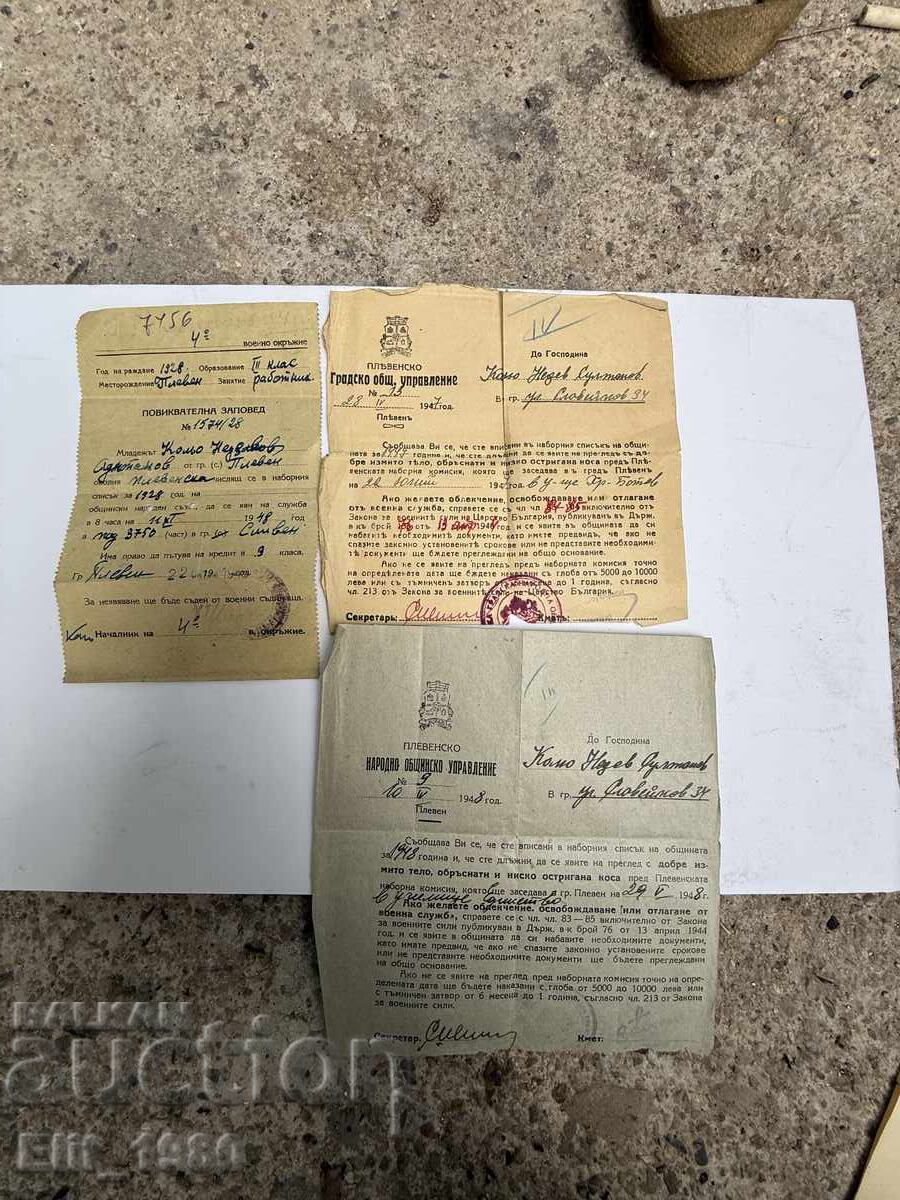 7456
4º военно окръжие
Год на раждане 1928. Образование III клас
Месторождение Плевен. Занятие работник.
ПОВИКВАТЕЛНА ЗАПОВЕД
№ 1574/28
Младежът Кольо
от гр. (с) Плевен
околия Плевенска числящ се в наборния
списък за 1928 год на
общински народен съвет, да се яви на служба
в 8 часа на 16 VI 1948 год
в под 3750 (част) в гр. Сливен
Има право да пътува на кредит в 9 класа.
Гр Плевен 22 19
За неявяване ще бъде съден от военни съдилища.
Началник на 4º в. окръжие.
ПЛѢВЕНСКО
Градско общ. управление
№ 13
28 IV 1947 год.
Плѣвенъ
IV
До Господина
Кольо Недев Султанов
В гр. ул Словейков 34
Съобщава Ви се, че сте вписани въ наборния списъкъ на общи-
ната за 1947 година и, че сте длъжни да се явите на прегледъ съ до-
бре измито тело, обръснати и низко остригана коса предъ Плѣ-
венската наборна комисия, която ще заседава въ градъ Плѣвенъ
на 22 юлий 194 в у-ще Хр. Ботев
Ако желаете облекчение, освобождаване или отлагане
отъ военна служба, справете се съ чл чл. 84-85 включително от
Закона за военните сили на Царство България, публикуванъ въ Държ.
в-къ брой 76 отъ 13 април 1944 год и се явите въ общината да си
набавите необходимите документи, като имете предвидъ, че ако не
спазите законно установените срокове или не представите необходими-
тѣ документи ще бждете преглеждани на общо основание.
Ако не се явите на прегледъ предъ наборната комисия точно
на опредѣлената дата ще бждете наказани съ глоба отъ 5000 до 10000
лева или съ тъмниченъ затворъ отъ 6 месеца до 1 година, съгласно
чл. 213 отъ Закона за военнитѣ сили на Царство България.
Секретарь: Кметъ:
ПЛЕВЕНСКО
НАРОДНО ОБЩИНСКО УПРАВЛЕНИЕ
№ 9
10 IV 1948 год.
Плевен
III
До Господина
Кольо Недев Султанов
В гр. ул. Словейков 34
Съобщава Ви се, че сте вписани в наборния списък на общината
за 1948 година и, че сте длъжни да се явите на преглед с добре из-
мито тело, обръснати и ниско остригана коса пред Плевенската
наборна комисия, която ще заседава в гр. Плевен на 29 V 1948 г.
в училище Единство
Ако желаете облекчение, освобождаване [или отлагане от
военна служб», справете се с чл. чл. 83—85 включително от Закона
за военните сили публикуван в Държ. в-к брой 76 от 13 април 1944
год. и се явите в общината да си набавите необходимите документи,
като имате предвид, че ако не спазите законно установените срокове
или не представите необходимите документи ще бъдете преглеждани
на общо основание.
Ако не се явите на преглед пред наборната комисия точно на опре-
делената дата ще бъдете наказани с глоба от 5000 до 10000 лева или
с тъмничен затвор от 6 месеца до 1 година, съгласно чл. 213 от Закона
за военните сили.
Секретар: Кмет:
BALKAN
auction
Elit_1980